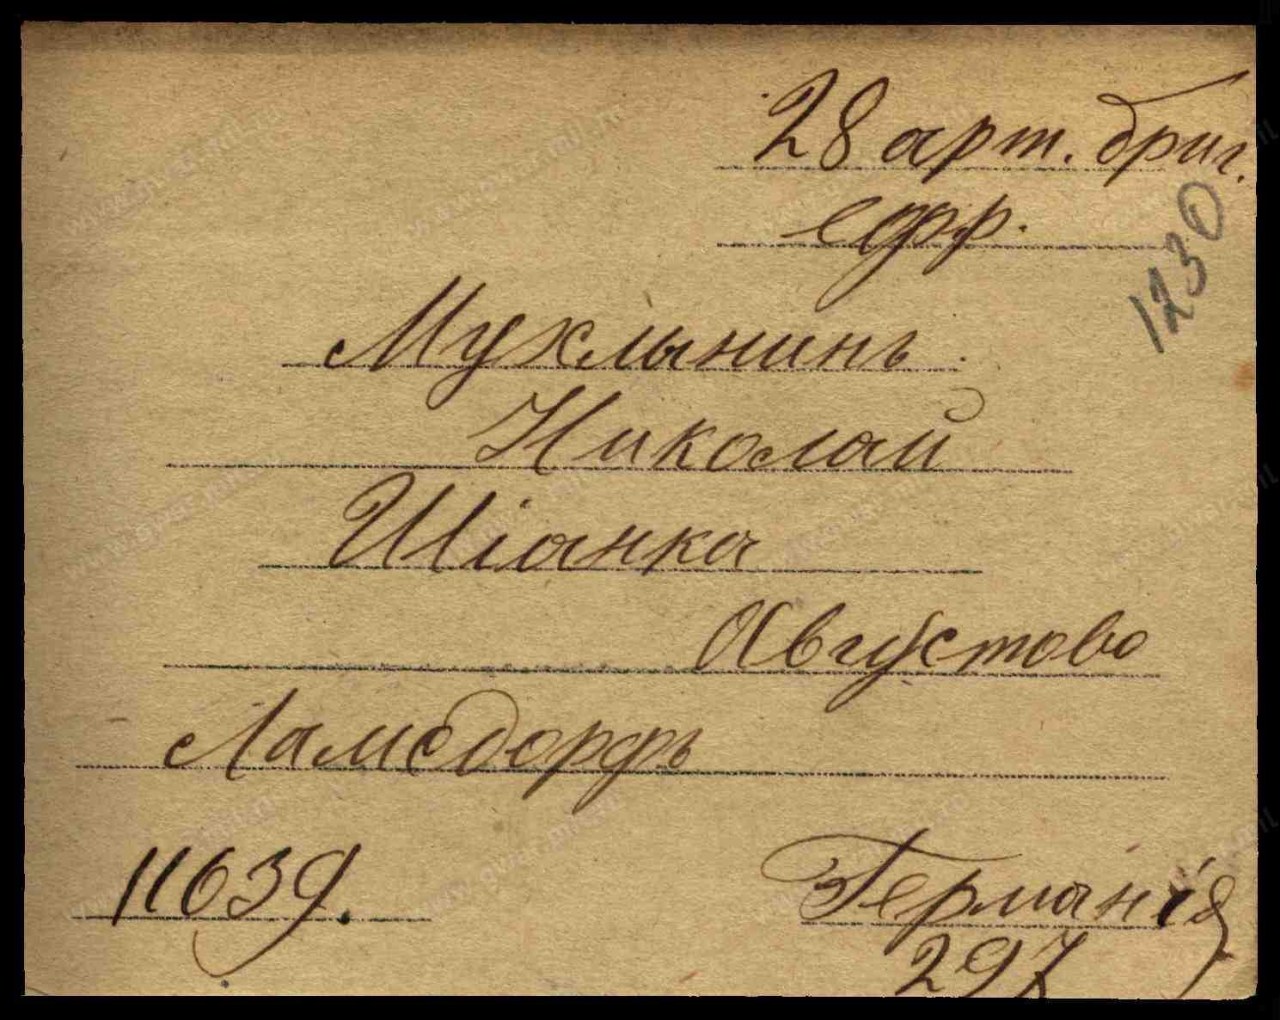 28 арт. бриг.
ефр.
1230
Мухлынинъ
Николай
Шіанка
Августово
Ламсдорфъ
11639.
Германія
297